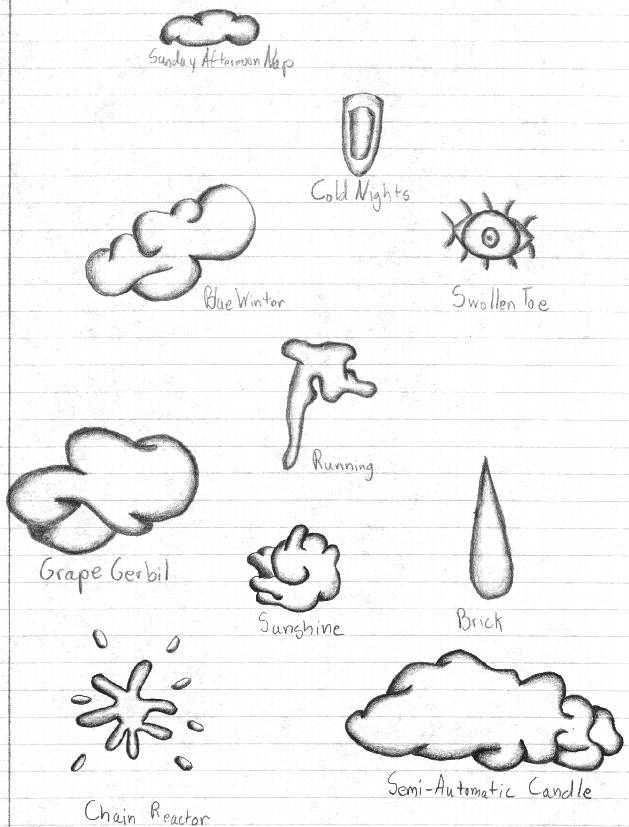 Sunday Afternoon Nap
Cold Nights
Blue Winter
Swollen Toe
Running
Grape Gerbil
Sunshine
Brick
Semi-Automatic Candle
Chain Reactor